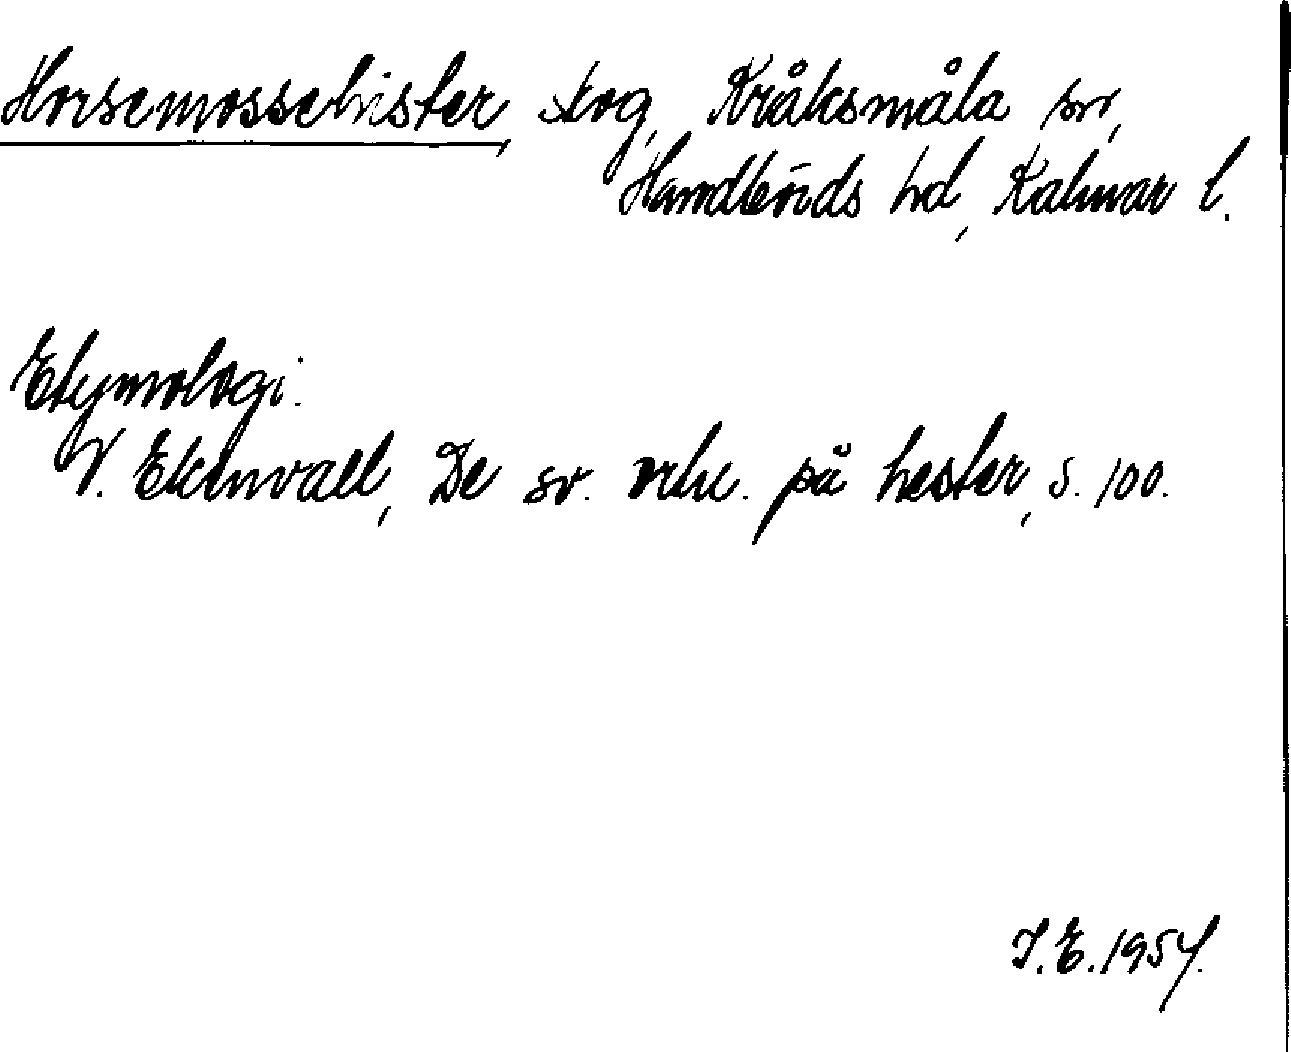 Horsemossebrister, skog, Kråksmåla sn,
Handbörds hd, Kalmar l.
Etymologi:
V. Ekenvall, De sv. ortn. på hester, s. 100.
I.E. 1957.